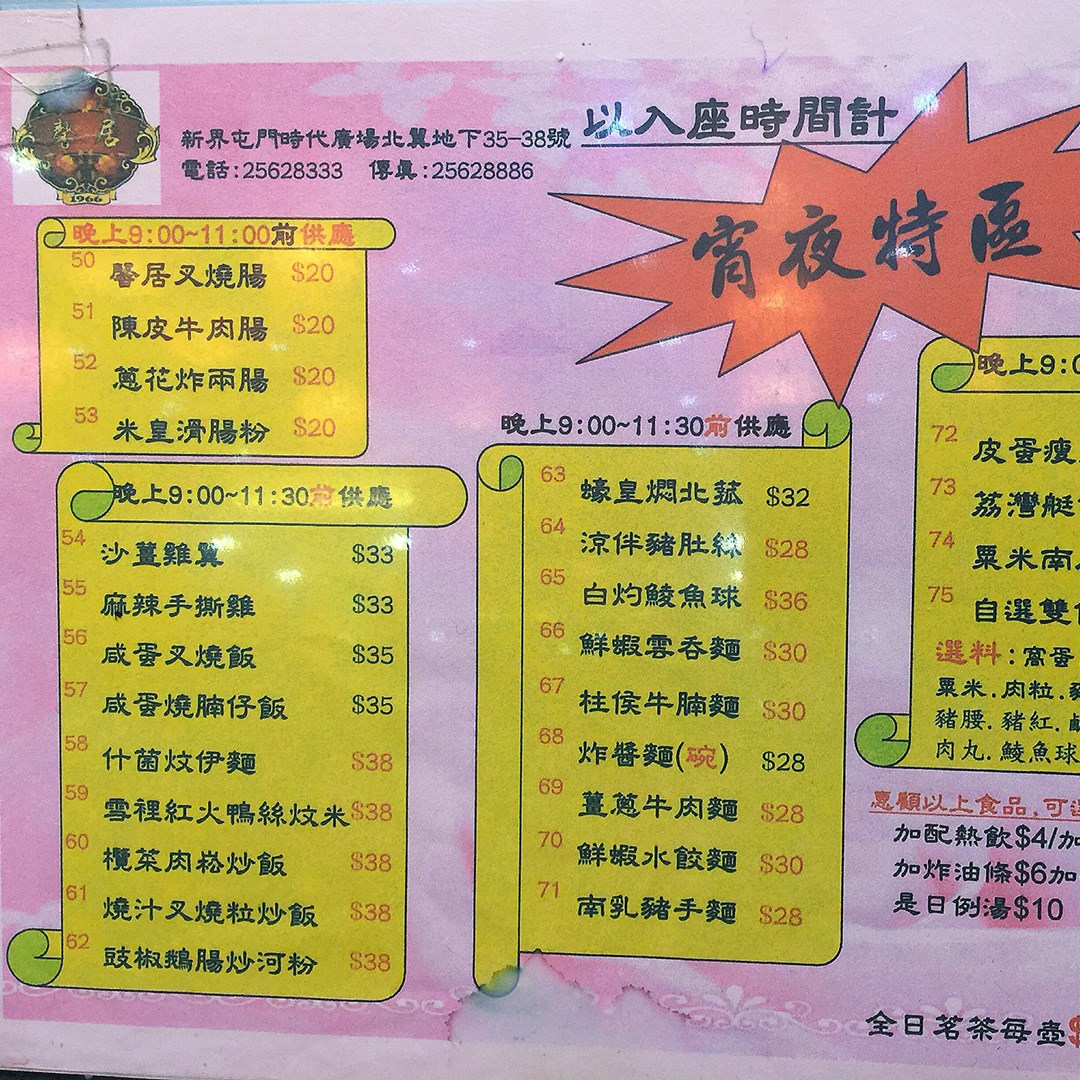 馨居
1966
新界屯門時代廣場北翼地下35-38號
電話:25628333 傳真:25628886
以入座時間計
宵夜特區
晚上9:00~11:00前供應
50 馨居叉燒腸 $20
51 陳皮牛肉腸 $20
52 蔥花炸兩腸 $20
53 米皇滑腸粉 $20
晚上9:00~11:30前供應
54 沙薑雞翼 $33
55 麻辣手撕雞 $33
56 咸蛋叉燒飯 $35
57 咸蛋燒腩仔飯 $35
58 什菌炆伊麵 $38
59 雪裡紅火鴨絲炆米 $38
60 欖菜肉崧炒飯 $38
61 燒汁叉燒粒炒飯 $38
62 豉椒鵝腸炒河粉 $38
晚上9:00~11:30前供應
63 蠔皇燜北菰 $32
64 涼伴豬肚絲 $28
65 白灼鯪魚球 $36
66 鮮蝦雲吞麵 $30
67 柱侯牛腩麵 $30
68 炸醬麵(碗) $28
69 薑蔥牛肉麵 $28
70 鮮蝦水餃麵 $30
71 南乳豬手麵 $28
晚上9:0
72 皮蛋瘦
73 荔灣艇
74 粟米南
75 自選雙
選料:窩蛋
粟米.肉粒.
豬腰.豬紅.
肉丸.鯪魚球
惠顧以上食品,可
加配熱飲$4/加
加炸油條$6加
是日例湯$10
全日茗茶每壺$